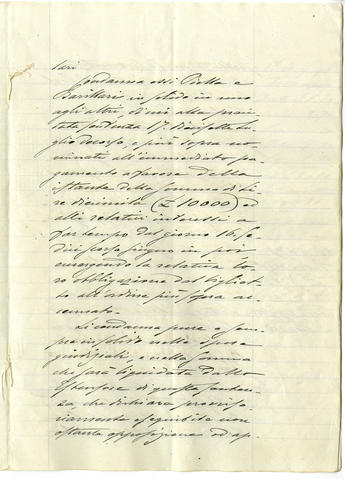 tari
Condanna essi Piella e
Barillari in solido in uno
agli altri di cui alla preci-
tata sentenza 17. diecisette Lu-
glio decorso, e più sopra no-
minati all'immediato pa-
gamento a favore della
istante della somma di Li-
re diecimila (£ 10000) ed
alli relativi interessi a
far tempo dal giorno 16. se-
dici scorso giugno in poi
emergendo la relativa lo-
ro obbligazione dal bigliet-
to all'ordine più sopra ac-
cennato.
Li condanna pure e sem-
pre in solido nelle spese
giudiziali, e nella somma
che sarà liquidata dallo
Estensore di questa senten-
za, che dichiara provviso-
riamente eseguibile non
ostante opposizione od ap-